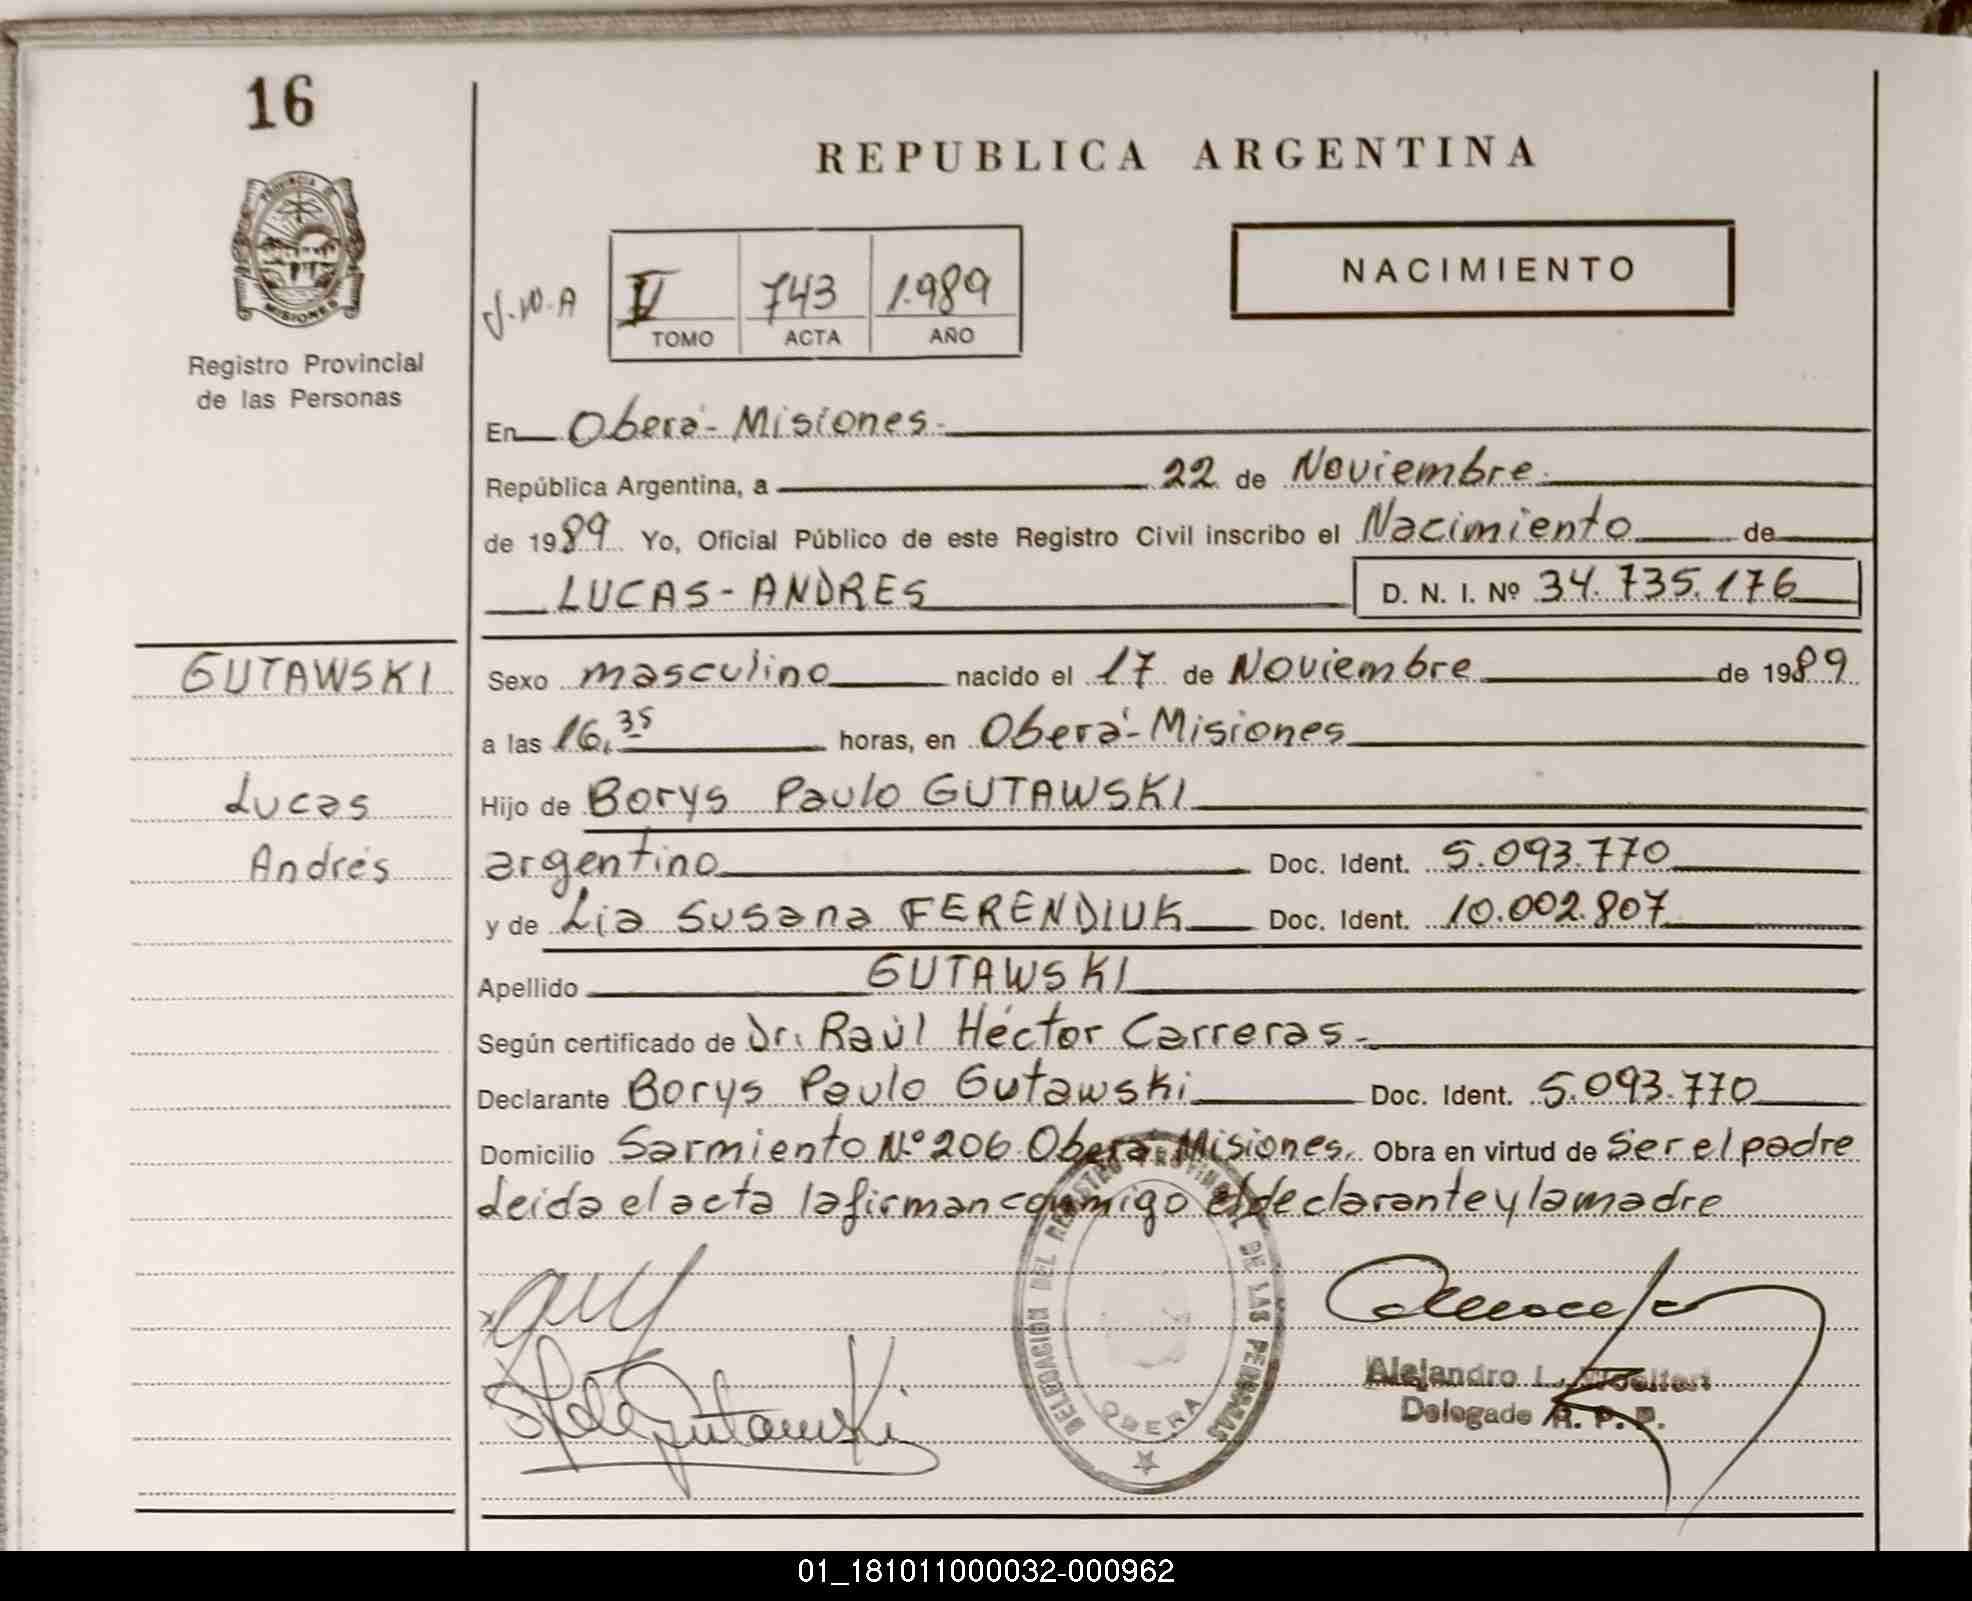 16
REPUBLICA ARGENTINA
PROVINCIA DE
MISIONES
Registro Provincial
de las Personas
NACIMIENTO
743 1.989
TOMO ACTA AÑO
En Oberá - Misiones.-
República Argentina, a 22 de Noviembre.
de 1989 Yo, Oficial Público de este Registro Civil inscribo el Nacimiento de
LUCAS - ANDRES D. N. I. Nº 34.735.176
GUTAWSKI
Lucas
Andrés
Sexo masculino nacido el 17 de Noviembre de 1989
a las 16,35 horas, en Oberá - Misiones
Hijo de Borys Paulo GUTAWSKI
argentino Doc. Ident. 5.093.770
y de Lia Susana FERENDIUK Doc. Ident. 10.002.807
Apellido GUTAWSKI
Según certificado de Dr. Raúl Héctor Carreras.-
Declarante Borys Paulo Gutawski Doc. Ident. 5.093.770
Domicilio Sarmiento Nº 206 Oberá Misiones. Obra en virtud de Ser el padre
Leida el acta la firman conmigo el declarante y la madre
DELEGACION DEL REGISTRO PROVINCIAL DE LAS PERSONAS
OBERA
Gutawski
Alejandro L.
Delegado R. P. P.
01_181011000032-000962